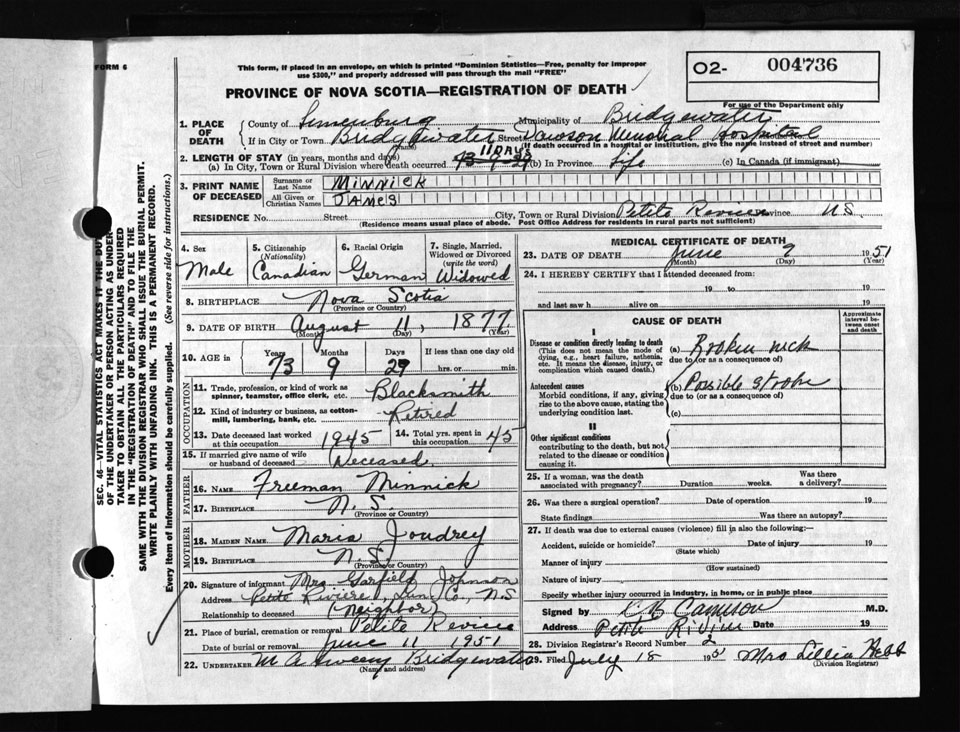 FORM 6
This form, if placed in an envelope, on which is printed "Dominion Statistics—Free, penalty for improper
use $300," and properly addressed will pass through the mail "FREE"
O2- 004736
PROVINCE OF NOVA SCOTIA—REGISTRATION OF DEATH
For use of the Department only
1. PLACE OF DEATH
County of Lunenburg Municipality of Bridgewater
If in City or Town Bridgewater Street Dawson Memorial Hospital
(Name) (If death occurred in a hospital or institution, give the name instead of street and number)
2. LENGTH OF STAY (in years, months and days) 11 DAYS
(a) In City, Town or Rural Division where death occurred 73-9-29 (b) In Province Life (c) In Canada (if immigrant)
3. PRINT NAME OF DECEASED
Surname or Last Name MINNICK
All Given or Christian Names JAMES
RESIDENCE No. Street City, Town or Rural Division Petite Reviere Province N.S.
(Residence means usual place of abode. Post Office Address for residents in rural parts not sufficient)
4. Sex 5. Citizenship (Nationality) 6. Racial Origin 7. Single, Married, Widowed or Divorced (write the word)
Male Canadian German Widowed
8. BIRTHPLACE Nova Scotia
(Province or Country)
9. DATE OF BIRTH August 11, 1877
(Month) (Day) (Year)
10. AGE in Years Months Days If less than one day old
73 9 29 hrs. or min.
OCCUPATION
11. Trade, profession, or kind of work as spinner, teamster, office clerk, etc. Blacksmith
12. Kind of industry or business, as cotton-mill, lumbering, bank, etc. Retired
13. Date deceased last worked at this occupation 1945 14. Total yrs. spent in this occupation 45
15. If married give name of wife or husband of deceased Deceased
FATHER
16. NAME Freeman Minnick
17. BIRTHPLACE N.S.
(Province or Country)
MOTHER
18. MAIDEN NAME Maria Joudrey
19. BIRTHPLACE N.S.
(Province or Country)
20. Signature of informant Mrs Garfield Johnson
Address Petite Riviere, Lun. Co., N.S
Relationship to deceased (Neighbor)
21. Place of burial, cremation or removal Petite Reviere
Date of burial or removal June 11 1951
22. UNDERTAKER M A Sweeny Bridgewater
(Name and address)
MEDICAL CERTIFICATE OF DEATH
23. DATE OF DEATH June 9 1951
(Month) (Day) (Year)
24. I HEREBY CERTIFY that I attended deceased from:
19 to 19
and last saw h alive on 19
CAUSE OF DEATH
Approximate interval between onset and death
I
Disease or condition directly leading to death (a) Broken nick
(This does not mean the mode of dying, e.g., heart failure, asthenia, etc. It means the disease, injury, or complication which caused death.)
due to (or as a consequence of)
Antecedent causes (b) Possible stroke
Morbid conditions, if any, giving rise to the above cause, stating the underlying condition last.
due to (or as a consequence of)
(c)
II
Other significant conditions
contributing to the death, but not related to the disease or condition causing it.
25. If a woman, was the death associated with pregnancy? Duration weeks. Was there a delivery?
26. Was there a surgical operation? Date of operation 19
State findings Was there an autopsy?
27. If death was due to external causes (violence) fill in also the following:—
Accident, suicide or homicide? Date of injury 19
(State which)
Manner of injury
(How sustained)
Nature of injury
Specify whether injury occurred in industry, in home, or in public place
Signed by C B Cameron M.D.
Address Petite Riviere Date 19
28. Division Registrar's Record Number 2
29. Filed July 18 1951 Mrs Lillia Hebb
(Division Registrar)
SEC. 46—VITAL STATISTICS ACT MAKES IT THE DUTY
OF THE UNDERTAKER OR PERSON ACTING AS UNDER-
TAKER TO OBTAIN ALL THE PARTICULARS REQUIRED
IN THE "REGISTRATION OF DEATH" AND TO FILE THE
SAME WITH THE DIVISION REGISTRAR WHO SHALL ISSUE THE BURIAL PERMIT.
WRITE PLAINLY WITH UNFADING INK. THIS IS A PERMANENT RECORD.
Every item of Information should be carefully supplied. (See reverse side for instructions.)